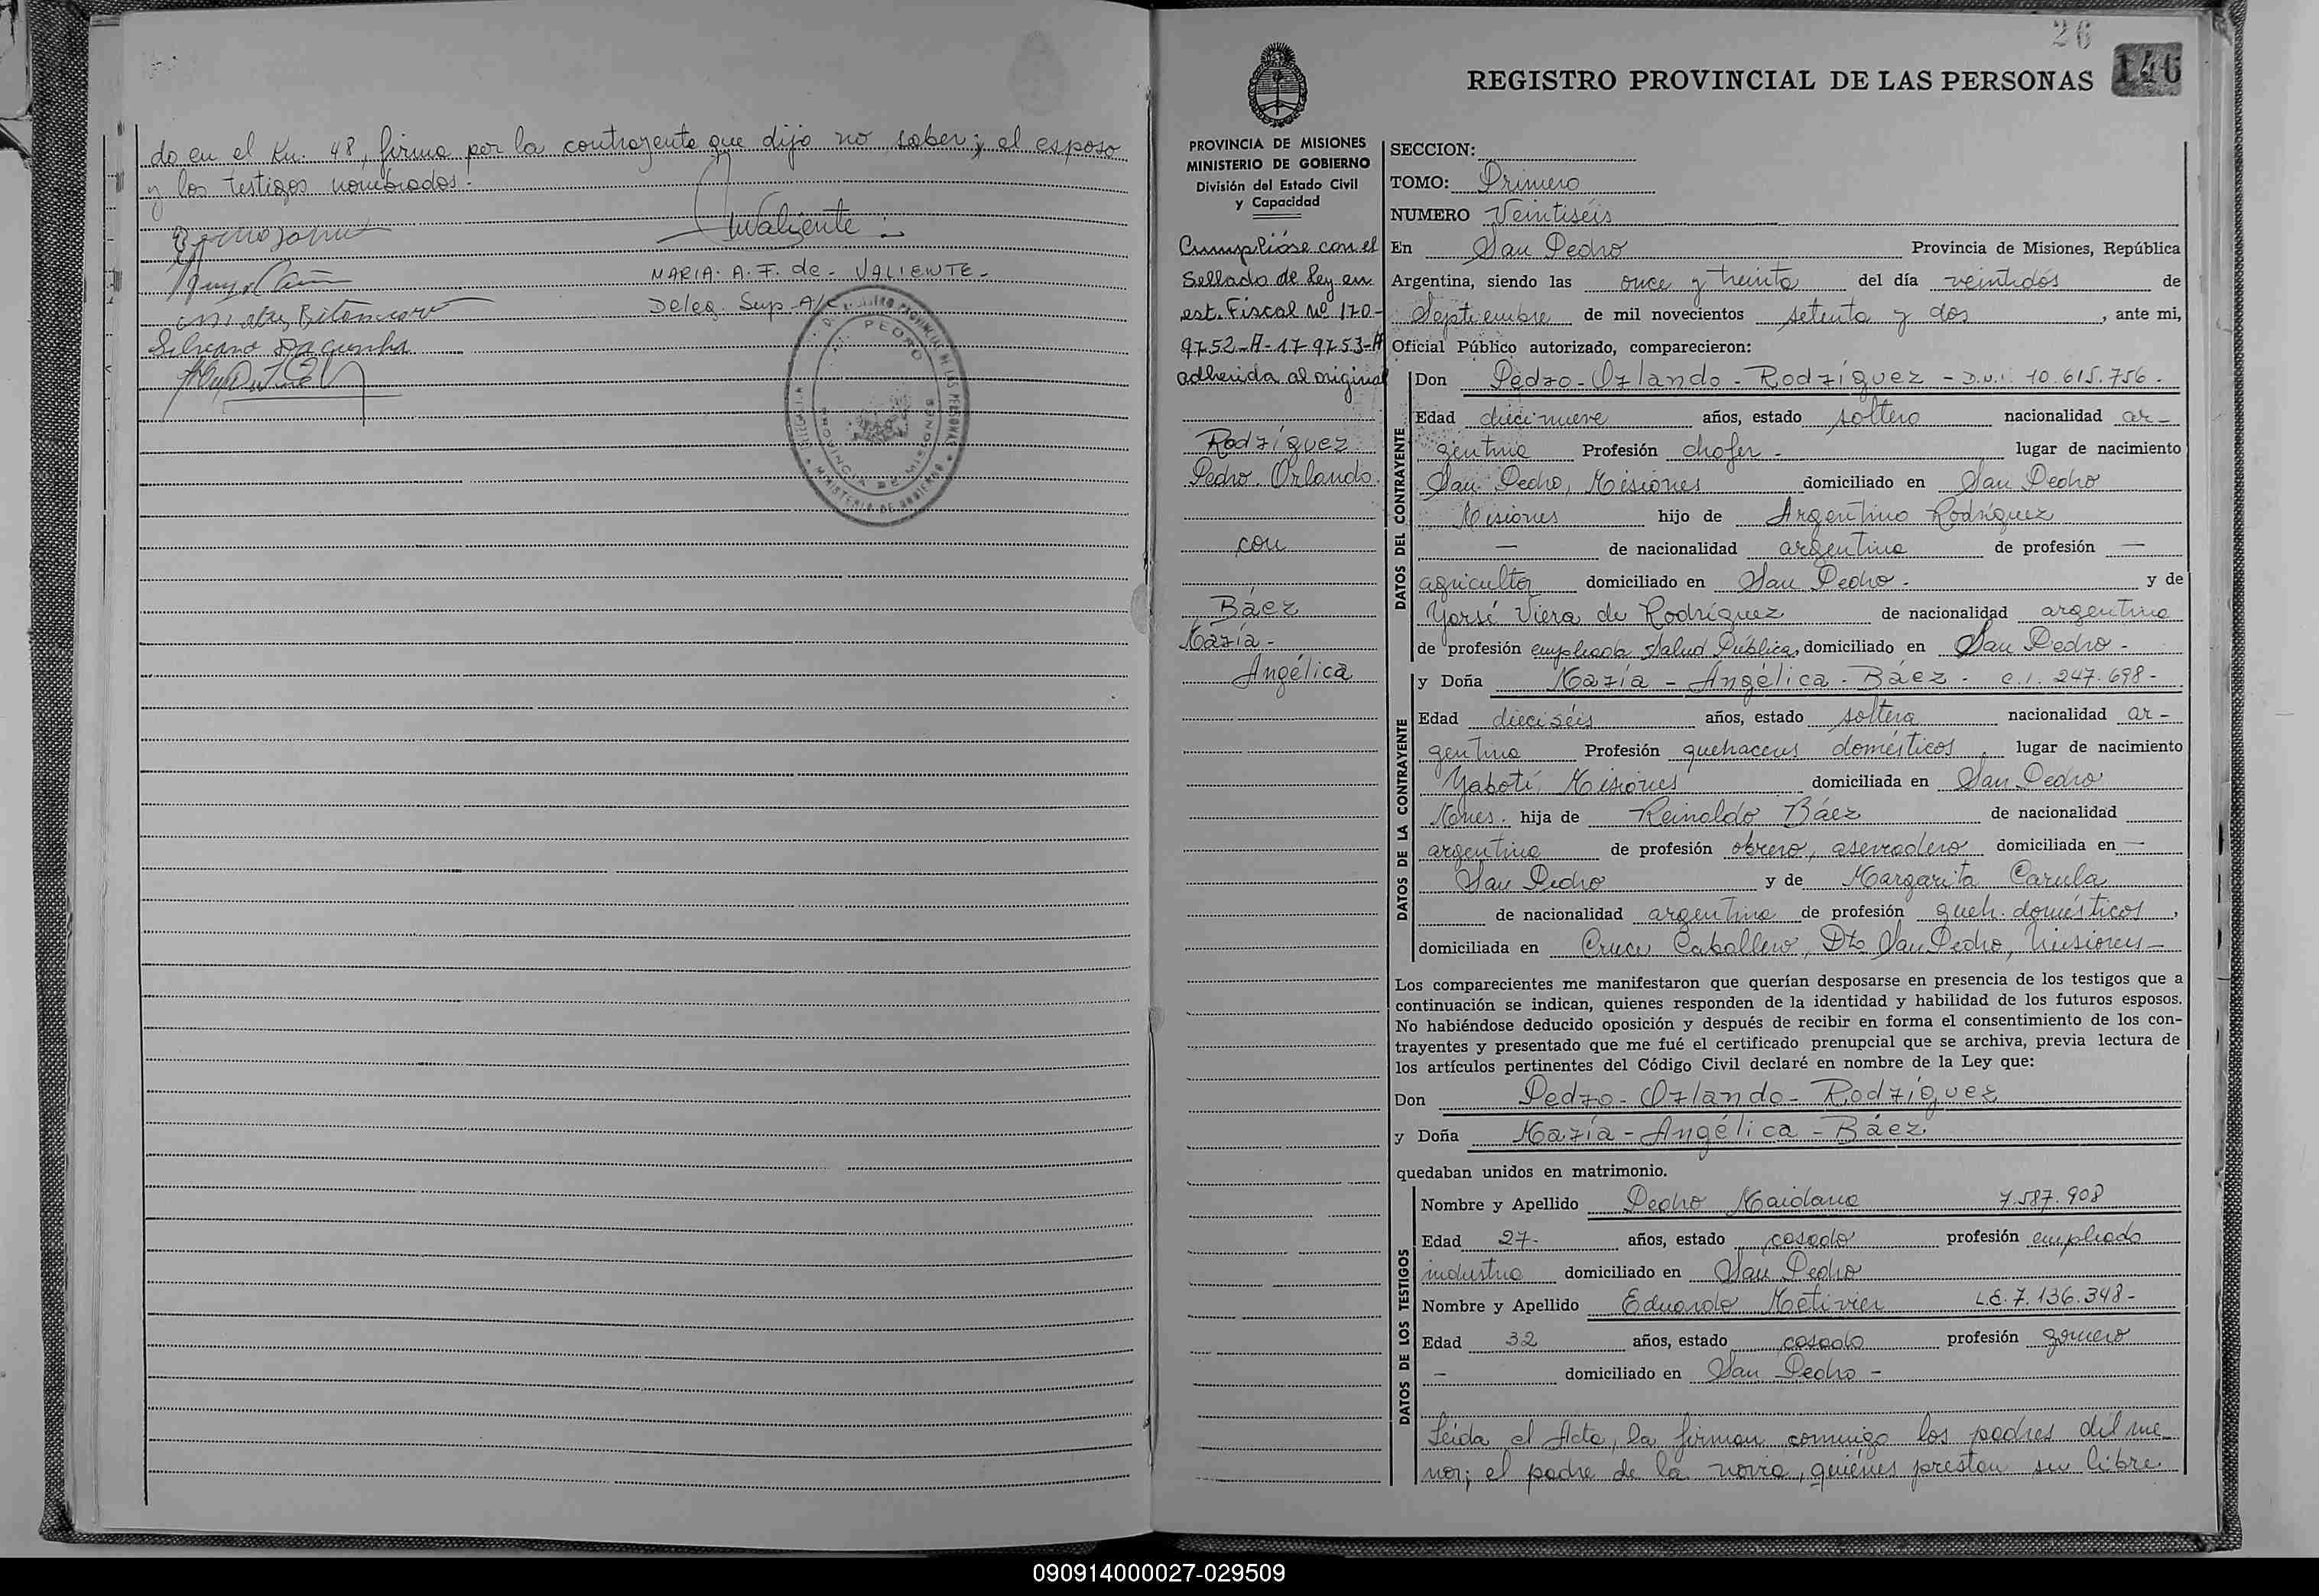 do en el Km. 48, firma por la contrayente que dijo no saber; el esposo
y los testigos nombrados.-
MARIA. A. F. de. VALIENTE-
Deleg. Sup. A/C
26
146
REGISTRO PROVINCIAL DE LAS PERSONAS
PROVINCIA DE MISIONES
MINISTERIO DE GOBIERNO
División del Estado Civil
y Capacidad
Cumplióse con el
Sellado de Ley en
est. Fiscal Nº 170-
9752-A-17-9753-A
adherida al original
Rodríguez
Pedro Orlando.
con
Báez
María-
Angélica
SECCION:
TOMO: Primero
NUMERO Veintiséis
En San Pedro Provincia de Misiones, República
Argentina, siendo las once y treinta del día veintidós de
Septiembre de mil novecientos setenta y dos, ante mi,
Oficial Público autorizado, comparecieron:
DATOS DEL CONTRAYENTE
Don Pedro-Orlando-Rodríguez - D.N.I. 10.615.756.
Edad diecinueve años, estado soltero nacionalidad ar-
gentina Profesión chofer - lugar de nacimiento
San Pedro, Misiones domiciliado en San Pedro
Misiones hijo de Argentino Rodríguez
— de nacionalidad argentina de profesión —
agricultor domiciliado en San Pedro. y de
Yorsí Viera de Rodríguez de nacionalidad argentina
de profesión empleada Salud Pública, domiciliado en San Pedro-
DATOS DE LA CONTRAYENTE
y Doña María-Angélica-Báez- C.I. 247.698-
Edad dieciséis años, estado soltera nacionalidad ar-
gentina Profesión quehaceres domésticos, lugar de nacimiento
Yabotí, Misiones domiciliada en San Pedro
Mnes. hija de Reinaldo Báez de nacionalidad
argentina de profesión obrero, aserradero domiciliada en —
San Pedro y de Margarita Carula
de nacionalidad argentina de profesión queh. domésticos,
domiciliada en Cruce Caballero, Dto San Pedro, Misiones-
Los comparecientes me manifestaron que querían desposarse en presencia de los testigos que a
continuación se indican, quienes responden de la identidad y habilidad de los futuros esposos.
No habiéndose deducido oposición y después de recibir en forma el consentimiento de los con-
trayentes y presentado que me fué el certificado prenupcial que se archiva, previa lectura de
los artículos pertinentes del Código Civil declaré en nombre de la Ley que:
Don Pedro-Orlando-Rodríguez
y Doña María-Angélica-Báez
quedaban unidos en matrimonio.
DATOS DE LOS TESTIGOS
Nombre y Apellido Pedro Maidana 7.587.908
Edad 27- años, estado casado profesión empleado
industria domiciliado en San Pedro
Nombre y Apellido Eduardo Metivier L.E. 7.136.348-
Edad 32 años, estado casado profesión gomero
- domiciliado en San Pedro-
Leida el Acta, la firman conmigo los padres del me-
nor; el padre de la novia, quiénes prestan su libre
090914000027-029509